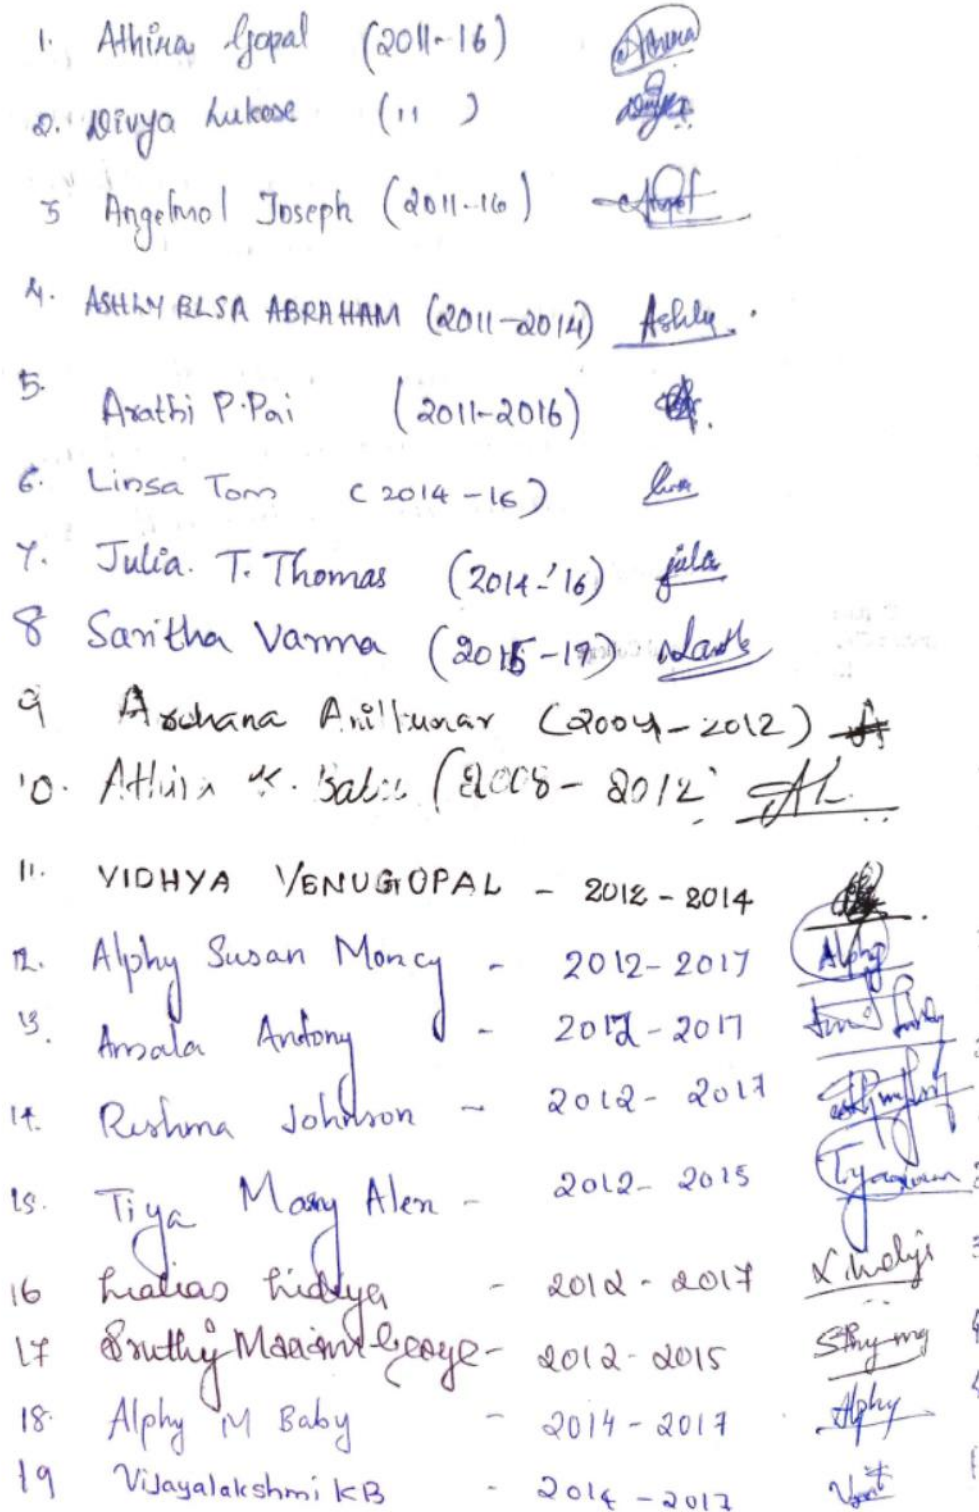 1. Athira Gopal (2011-16) Athira
2. Divya Lukose (11 ) Divya
3 Angelmol Joseph (2011-16) Angel
4. ASHLY ELSA ABRAHAM (2011-2014) Ashly.
5. Arathi P. Pai (2011-2016)
6. Linsa Tom (2014-16)
7. Julia. T. Thomas (2014-'16) julia
8 Saritha Varma (2015-17)
9 Archana Anilkumar (2004-2012)
10. Athira K. Babu (2008-2012
11. VIDHYA VENUGOPAL - 2012-2014
12. Alphy Susan Moncy - 2012-2017 Alphy
13. Amala Antony - 2012-2017
14. Reshma Johnson - 2012-2017
15. Tiya Mary Alen - 2012-2015
16 Lidiya - 2012-2017
17 Sruthy Mariam George - 2012-2015
18. Alphy M Baby - 2014-2017 Alphy
19 Vijayalakshmi KB - 2014-2017